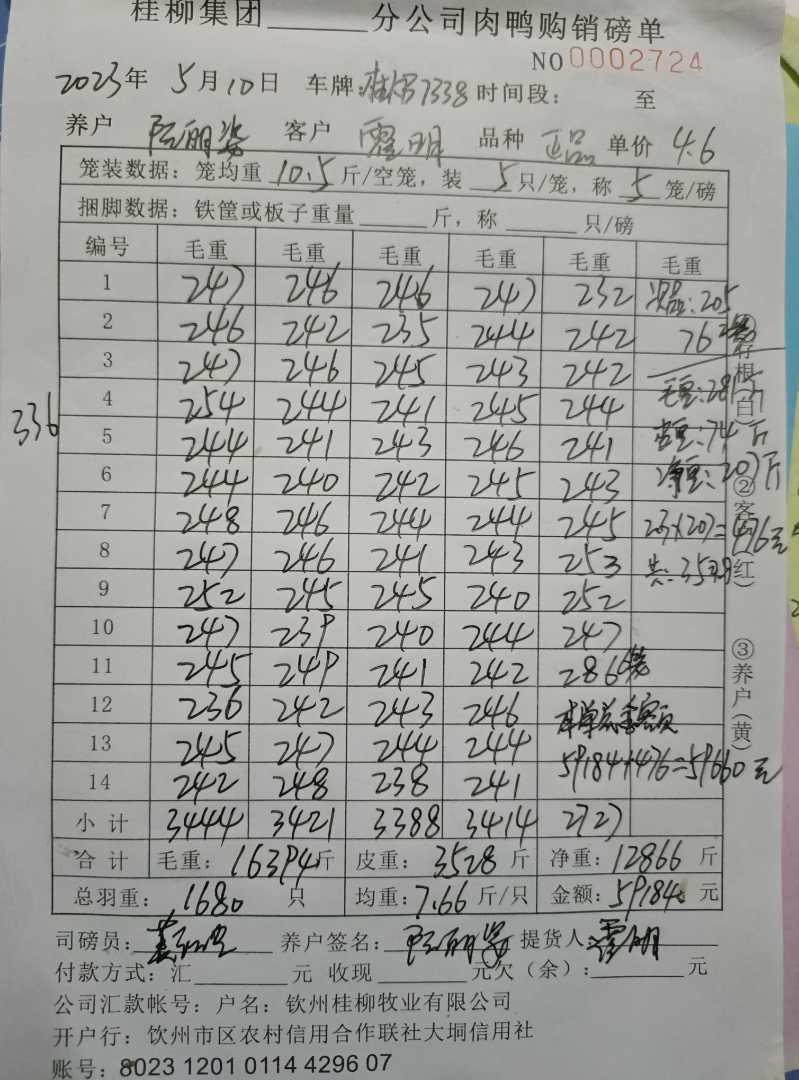 桂柳集团______分公司肉鸭购销磅单
NO 0002724
2023年 5月10日 车牌: 7338 时间段: 至
养户 阮丽姿 客户 霍明 品种 正品 单价 4.6
笼装数据: 笼均重 10.5 斤/空笼, 装 5 只/笼, 称 5 笼/磅
捆脚数据: 铁筐或板子重量______斤, 称______只/磅
编号 毛重 毛重 毛重 毛重 毛重 毛重
1 247 246 246 247 232 次品: 205
2 246 242 235 244 242 76
3 247 246 245 243 242
4 254 244 241 245 244 毛重: 281斤
336
5 244 241 243 246 241 皮重: 74斤
6 244 240 242 245 243 净重: 207斤
7 248 246 244 244 245 2.3×207=476元
8 247 246 241 243 253 共:
9 252 245 245 240 252
10 247 239 240 244 247
11 245 249 241 242 286
12 236 242 243 246 本单总金额
13 245 247 244 244 59184+476=59660元
14 242 248 238 241
小计 3444 3421 3388 3414 2727
合计 毛重: 16394斤 皮重: 3528斤 净重: 12866斤
总羽重: 1680 只 均重: 7.66 斤/只 金额: 59184元
司磅员: 养户签名: 阮丽姿 提货人: 霍明
付款方式: 汇______元 收现______元欠(余):______元
公司汇款帐号: 户名: 钦州桂柳牧业有限公司
开户行: 钦州市区农村信用合作联社大垌信用社
账号: 8023 1201 0114 4296 07
①存根(白) ②客户(红) ③养户(黄)